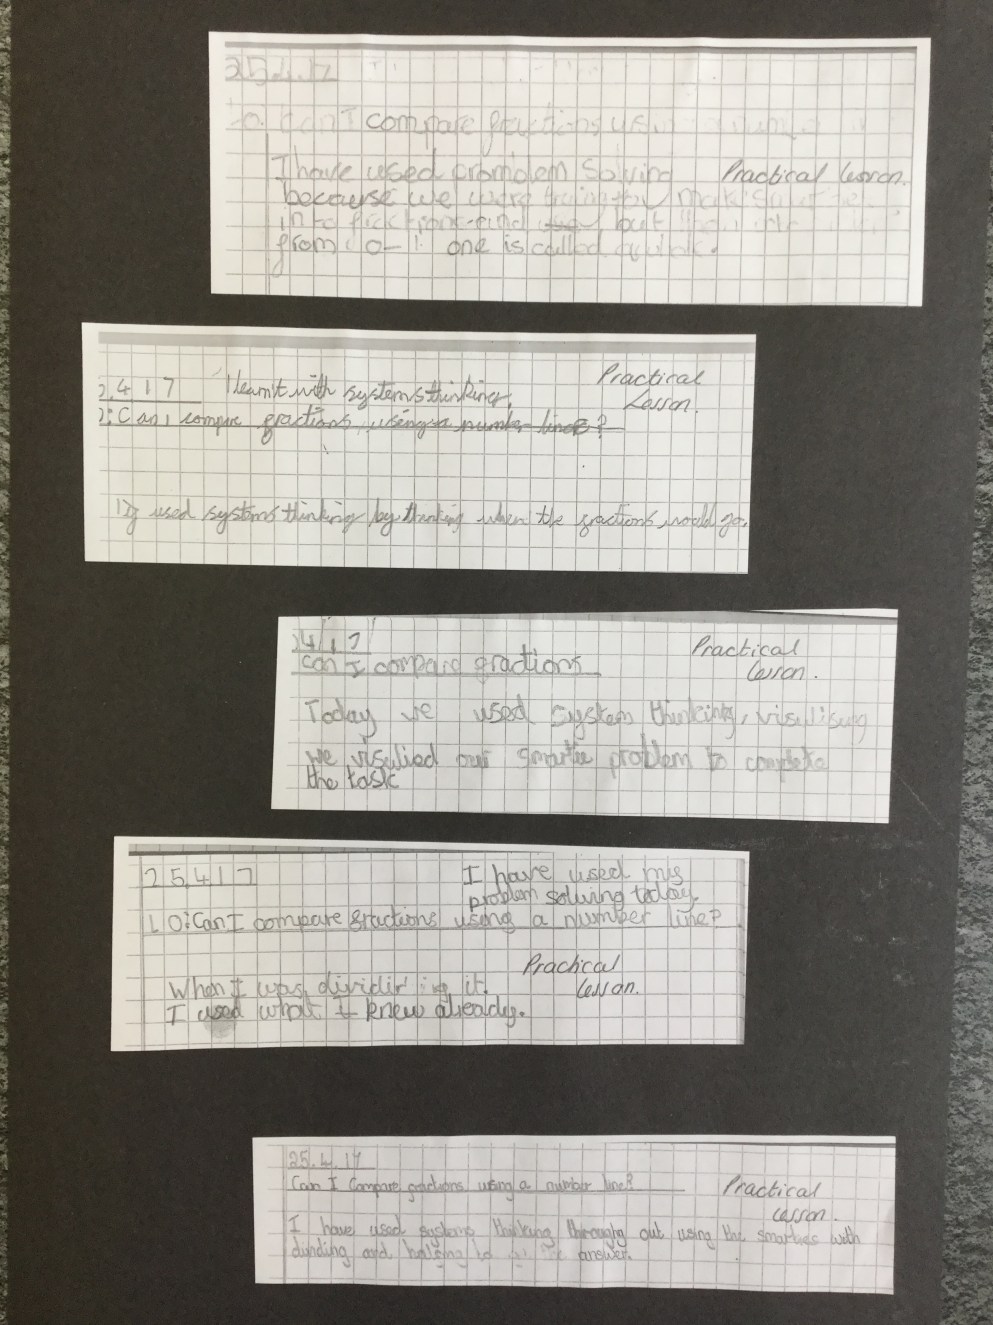 25.4.17
Can I compare fractions using a
I have used promblem Solving
Practical lesson.
because we were
into
but
from 0-1 one is called
Practical
Lesson.
2.4 1 7 I learnt with systems thinking.
Can I compare fractions, using a number line?
used systems thinking by thinking when the fractions would go.
4/17
Practical
lesson.
Can I compare fractions
Today we used system thinking, visulising
we visulied our smartie problem to complete
the task
25.4 1 7
I have used my
problem solving today.
L O: Can I compare fractions using a number line?
Practical
lesson.
When I was dividir ing it.
I used what I knew already.
25.4.17
Can I Compare fractions using a number line?
Practical
lesson.
I have used systems thinking throughy out using the smarties with
dividing and halfing to the answer.